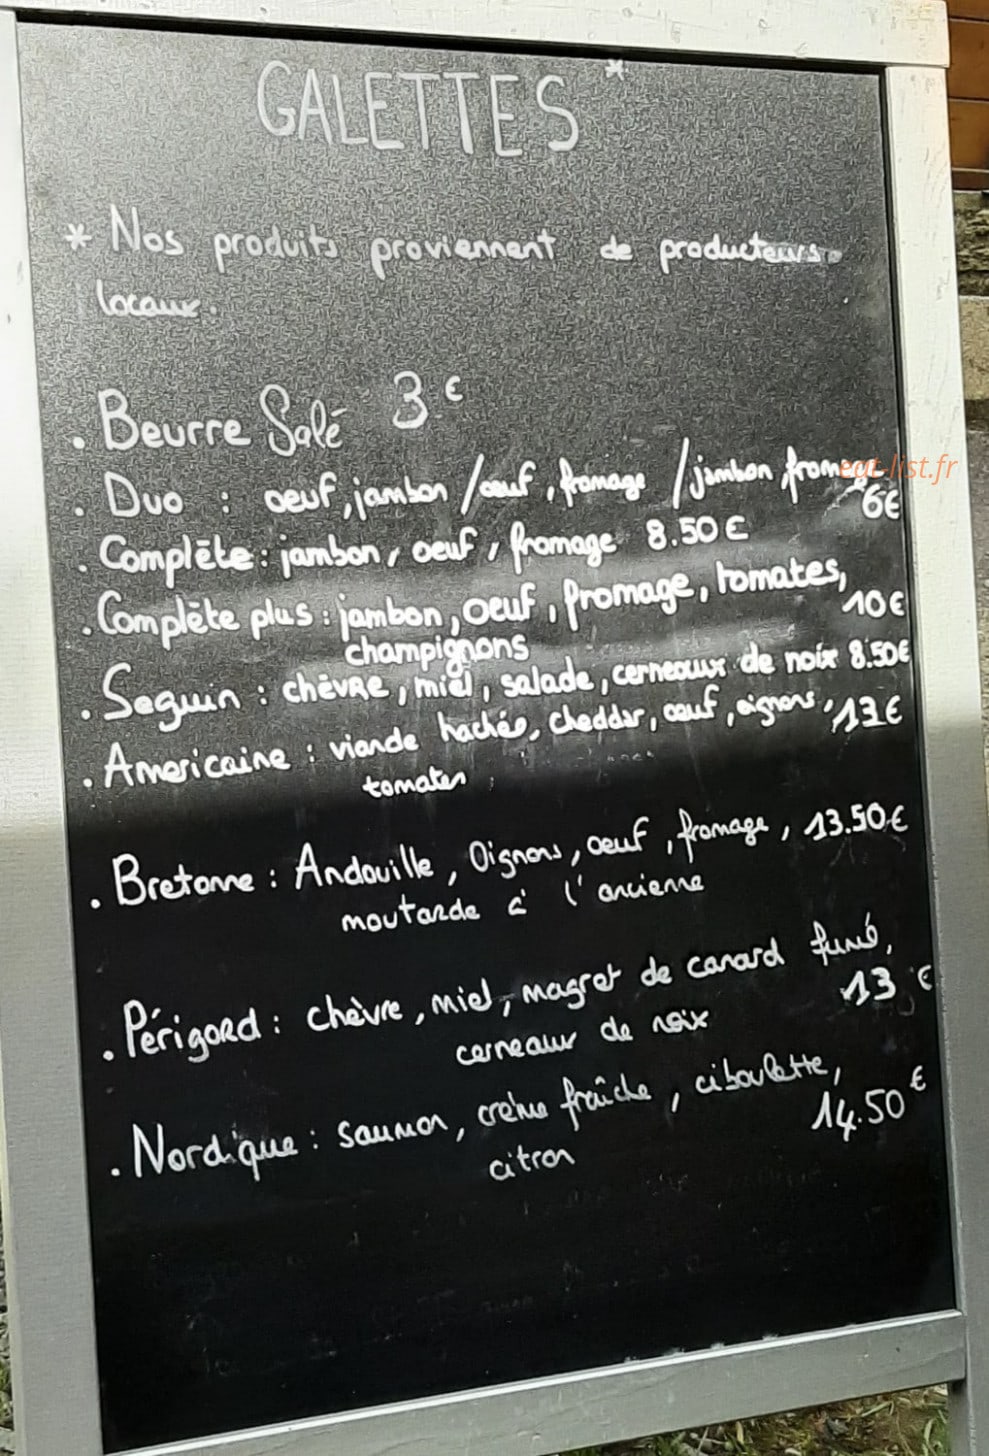 GALETTES *
* Nos produits proviennent de producteurs
locaux.
. Beurre Salé 3€
. Duo : oeuf, jambon / oeuf, fromage / jambon, fromage
eat-list.fr
6€
. Complète : jambon, oeuf, fromage 8.50€
. Complète plus : jambon, oeuf, fromage, tomates,
10€
champignons
. Seguin : chèvre, miel, salade, cerneaux de noix 8.50€
. Americaine : viande hachée, cheddar, oeuf, oignons, 13€
tomates
. Bretonne : Andouille, Oignons, oeuf, fromage, 13.50€
moutarde à l'ancienne
. Périgord : chèvre, miel, magret de canard fumé,
13€
cerneaux de noix
. Nordique : saumon, crème fraîche, ciboulette,
14.50€
citron